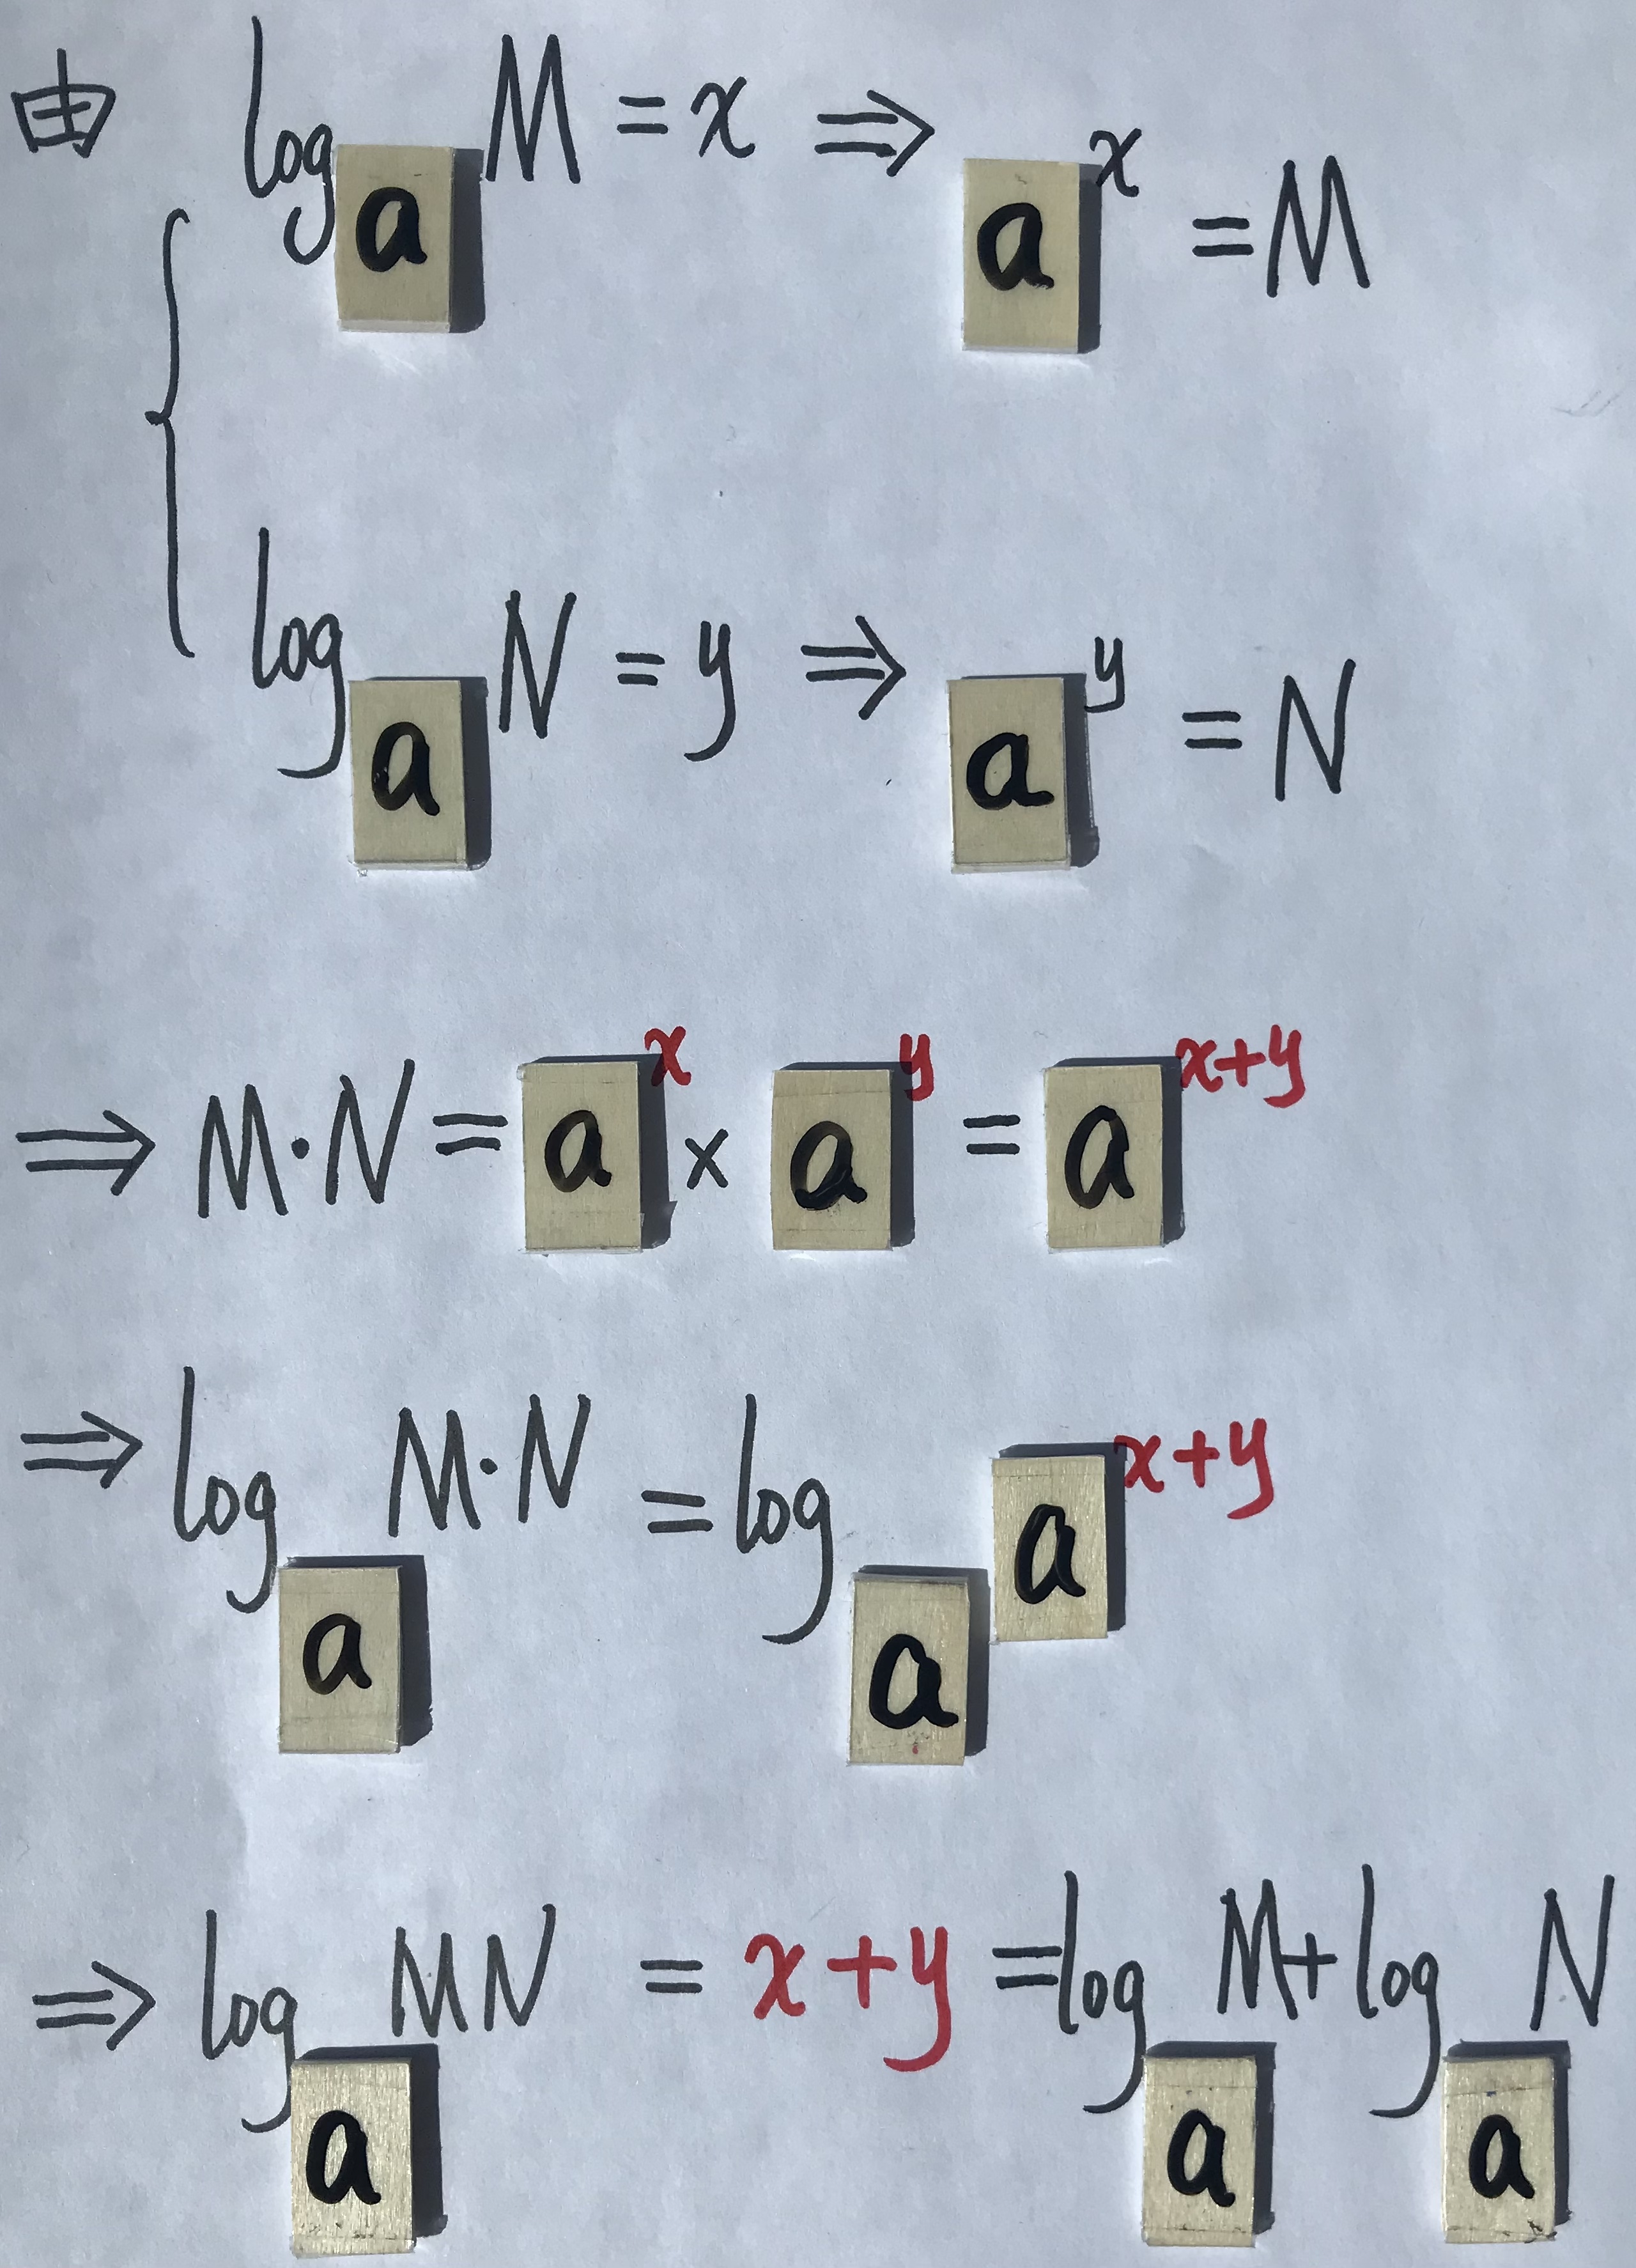 由 logₐ M = x ⇒ aˣ = M
{
logₐ N = y ⇒ aʸ = N
⇒ M·N = aˣ × aʸ = aˣ⁺ʸ
⇒ logₐ M·N = logₐ aˣ⁺ʸ
⇒ logₐ MN = x+y = logₐ M + logₐ N